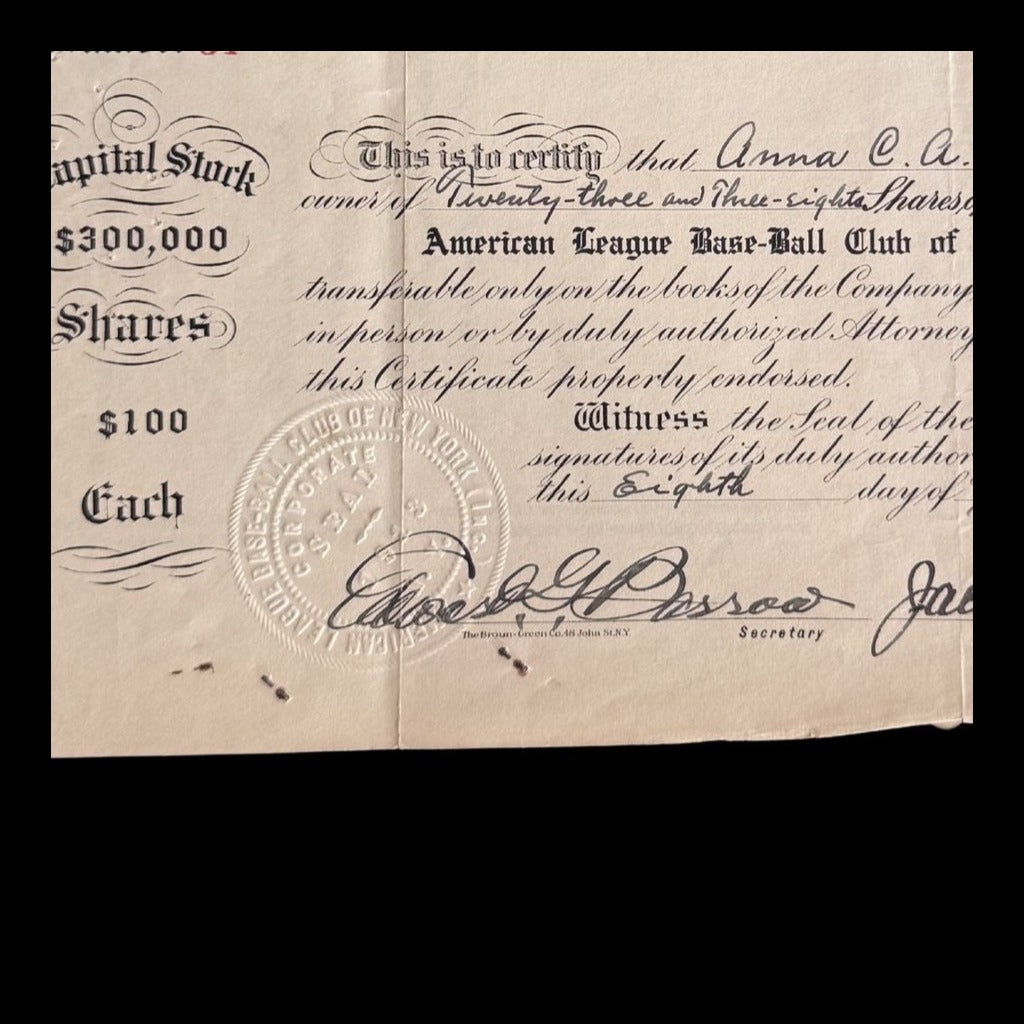 apital Stock
$300,000
Shares
$100
Each
This is to certify that Anna C. A.
owner of Twenty-three and Three-eights Shares o
American League Base-Ball Club of
transferable only on the books of the Company
in person or by duly authorized Attorney
this Certificate properly endorsed.
Witness the Seal of the
signatures of its duly author
this Eighth day of
AMERICAN LEAGUE BASE-BALL CLUB OF NEW YORK (Inc.)
CORPORATE
SEAL
Edward G Barrow Jac
The Broun-Green Co. 48 John St. N.Y.
Secretary